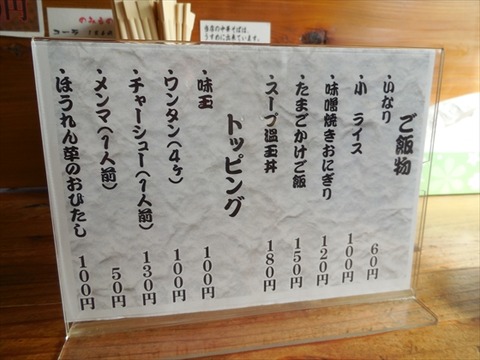 ご飯物
・いなり 60円
・小 ライス 100円
・味噌焼きおにぎり 120円
・たまごかけご飯 150円
・スープ温玉丼 180円
トッピング
・味玉 100円
・ワンタン(4ヶ) 100円
・チャーシュー(1人前) 130円
・メンマ(1人前) 50円
・ほうれん草のおひたし 100円
当店の中華そばは、
うすめに出来ています。